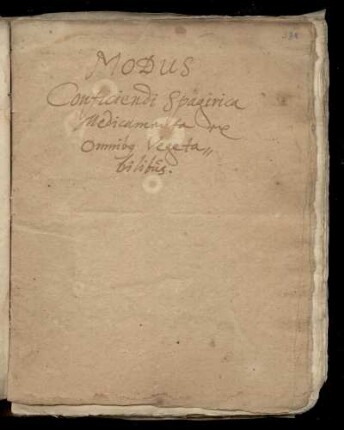 MODUS
Conficiendi Spagirica
Medicamenta ex
Omnibq Vegeta„
bilibus.